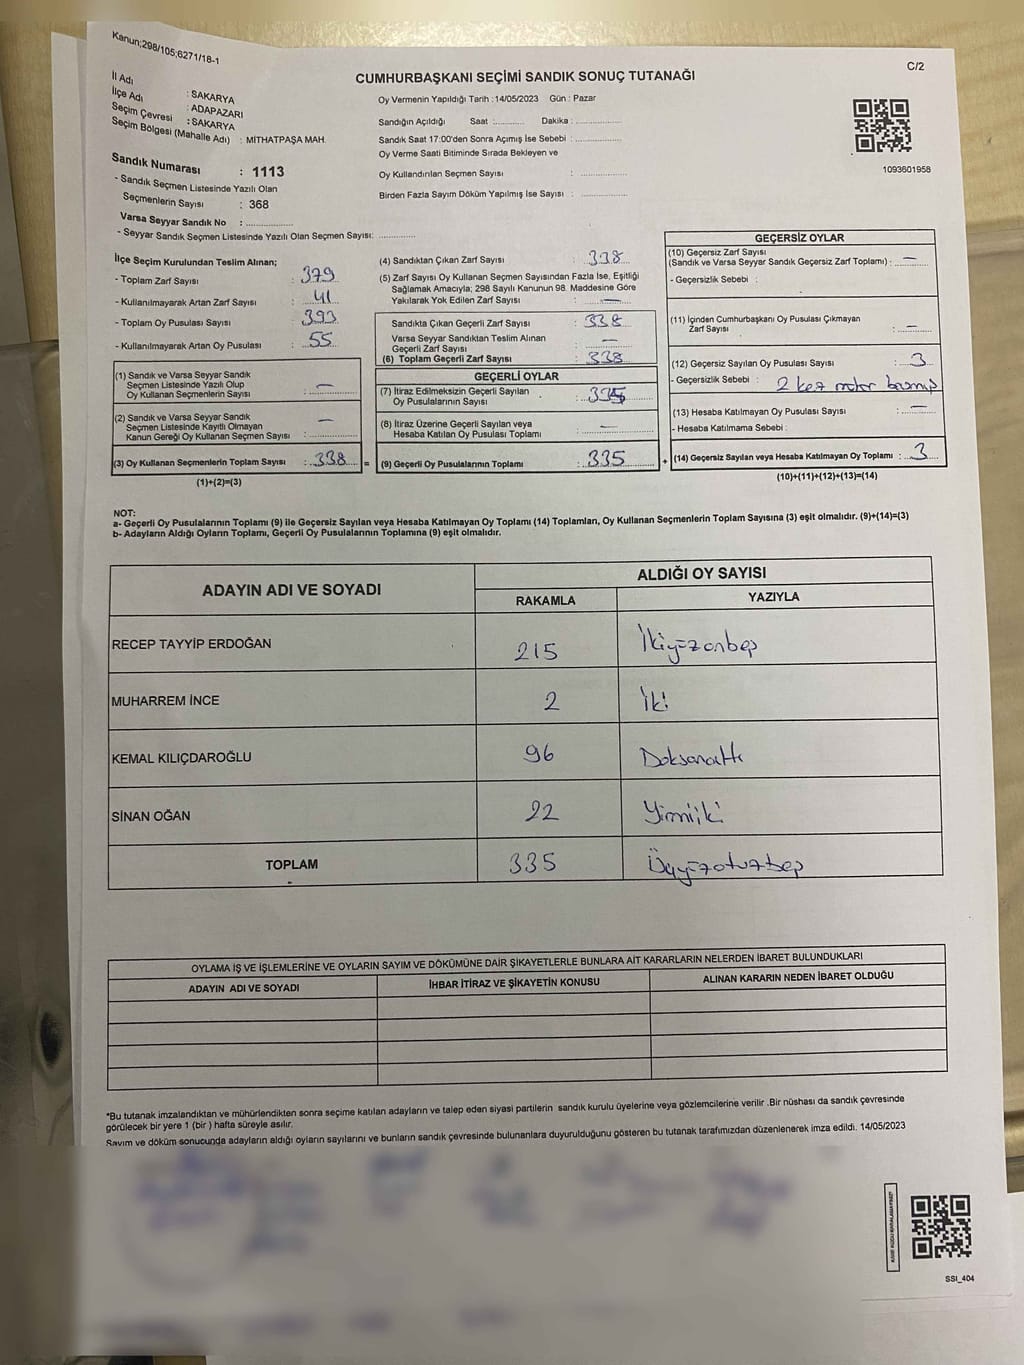 Kanun;298/105;6271/18-1
C/2
CUMHURBAŞKANI SEÇİMİ SANDIK SONUÇ TUTANAĞI
İl Adı : SAKARYA
İlçe Adı : ADAPAZARI
Seçim Çevresi : SAKARYA
Seçim Bölgesi (Mahalle Adı) : MİTHATPAŞA MAH.
Sandık Numarası : 1113
- Sandık Seçmen Listesinde Yazılı Olan
Seçmenlerin Sayısı : 368
Varsa Seyyar Sandık No : ................
- Seyyar Sandık Seçmen Listesinde Yazılı Olan Seçmen Sayısı: ............
Oy Vermenin Yapıldığı Tarih : 14/05/2023 Gün : Pazar
Sandığın Açıldığı Saat :........... Dakika :..............
Sandık Saat 17:00'den Sonra Açımış İse Sebebi :..............
Oy Verme Saati Bitiminde Sırada Bekleyen ve
Oy Kullandırılan Seçmen Sayısı : ..............
Birden Fazla Sayım Döküm Yapılmış İse Sayısı : ..............
1093601958
İlçe Seçim Kurulundan Teslim Alınan;
- Toplam Zarf Sayısı : 379
- Kullanılmayarak Artan Zarf Sayısı : 41
- Toplam Oy Pusulası Sayısı : 393
- Kullanılmayarak Artan Oy Pusulası : 55
(1) Sandık ve Varsa Seyyar Sandık
Seçmen Listesinde Yazılı Olup
Oy Kullanan Seçmenlerin Sayısı : —
(2) Sandık ve Varsa Seyyar Sandık
Seçmen Listesinde Kayıtlı Olmayan
Kanun Gereği Oy Kullanan Seçmen Sayısı : —
(3) Oy Kullanan Seçmenlerin Toplam Sayısı : 338 =
(1)+(2)=(3)
(4) Sandıktan Çıkan Zarf Sayısı : 338
(5) Zarf Sayısı Oy Kullanan Seçmen Sayısından Fazla İse, Eşitliği
Sağlamak Amacıyla; 298 Sayılı Kanunun 98. Maddesine Göre
Yakılarak Yok Edilen Zarf Sayısı : —
Sandıkta Çıkan Geçerli Zarf Sayısı : 338
Varsa Seyyar Sandıktan Teslim Alınan
Geçerli Zarf Sayısı : —
(6) Toplam Geçerli Zarf Sayısı : 338
GEÇERLİ OYLAR
(7) İtiraz Edilmeksizin Geçerli Sayılan
Oy Pusulalarının Sayısı : 335
(8) İtiraz Üzerine Geçerli Sayılan veya
Hesaba Katılan Oy Pusulası Toplamı : —
(9) Geçerli Oy Pusulalarının Toplamı : 335 +
GEÇERSİZ OYLAR
(10) Geçersiz Zarf Sayısı
(Sandık ve Varsa Seyyar Sandık Geçersiz Zarf Toplamı) : —
- Geçersizlik Sebebi :
(11) İçinden Cumhurbaşkanı Oy Pusulası Çıkmayan
Zarf Sayısı : —
(12) Geçersiz Sayılan Oy Pusulası Sayısı : 3
- Geçersizlik Sebebi : 2 kez mühür basmış
(13) Hesaba Katılmayan Oy Pusulası Sayısı : —
- Hesaba Katılmama Sebebi :
(14) Geçersiz Sayılan veya Hesaba Katılmayan Oy Toplamı : 3
(10)+(11)+(12)+(13)=(14)
NOT:
a- Geçerli Oy Pusulalarının Toplamı (9) ile Geçersiz Sayılan veya Hesaba Katılmayan Oy Toplamı (14) Toplamları, Oy Kullanan Seçmenlerin Toplam Sayısına (3) eşit olmalıdır. (9)+(14)=(3)
b- Adayların Aldığı Oyların Toplamı, Geçerli Oy Pusulalarının Toplamına (9) eşit olmalıdır.
ADAYIN ADI VE SOYADI ALDIĞI OY SAYISI
RAKAMLA YAZIYLA
RECEP TAYYİP ERDOĞAN 215 İkiyüzonbeş
MUHARREM İNCE 2 İki
KEMAL KILIÇDAROĞLU 96 Doksanaltı
SİNAN OĞAN 22 Yirmiiki
TOPLAM 335 Üçyüzotuzbeş
OYLAMA İŞ VE İŞLEMLERİNE VE OYLARIN SAYIM VE DÖKÜMÜNE DAİR ŞİKAYETLERLE BUNLARA AİT KARARLARIN NELERDEN İBARET BULUNDUKLARI
ADAYIN ADI VE SOYADI İHBAR İTİRAZ VE ŞİKAYETİN KONUSU ALINAN KARARIN NEDEN İBARET OLDUĞU
*Bu tutanak imzalandıktan ve mühürlendikten sonra seçime katılan adayların ve talep eden siyasi partilerin sandık kurulu üyelerine veya gözlemcilerine verilir .Bir nüshası da sandık çevresinde
görülecek bir yere 1 (bir ) hafta süreyle asılır.
Sayım ve döküm sonucunda adayların aldığı oyların sayılarını ve bunların sandık çevresinde bulunanlara duyurulduğunu gösteren bu tutanak tarafımızdan düzenlenerek imza edildi. 14/05/2023
SSI_404